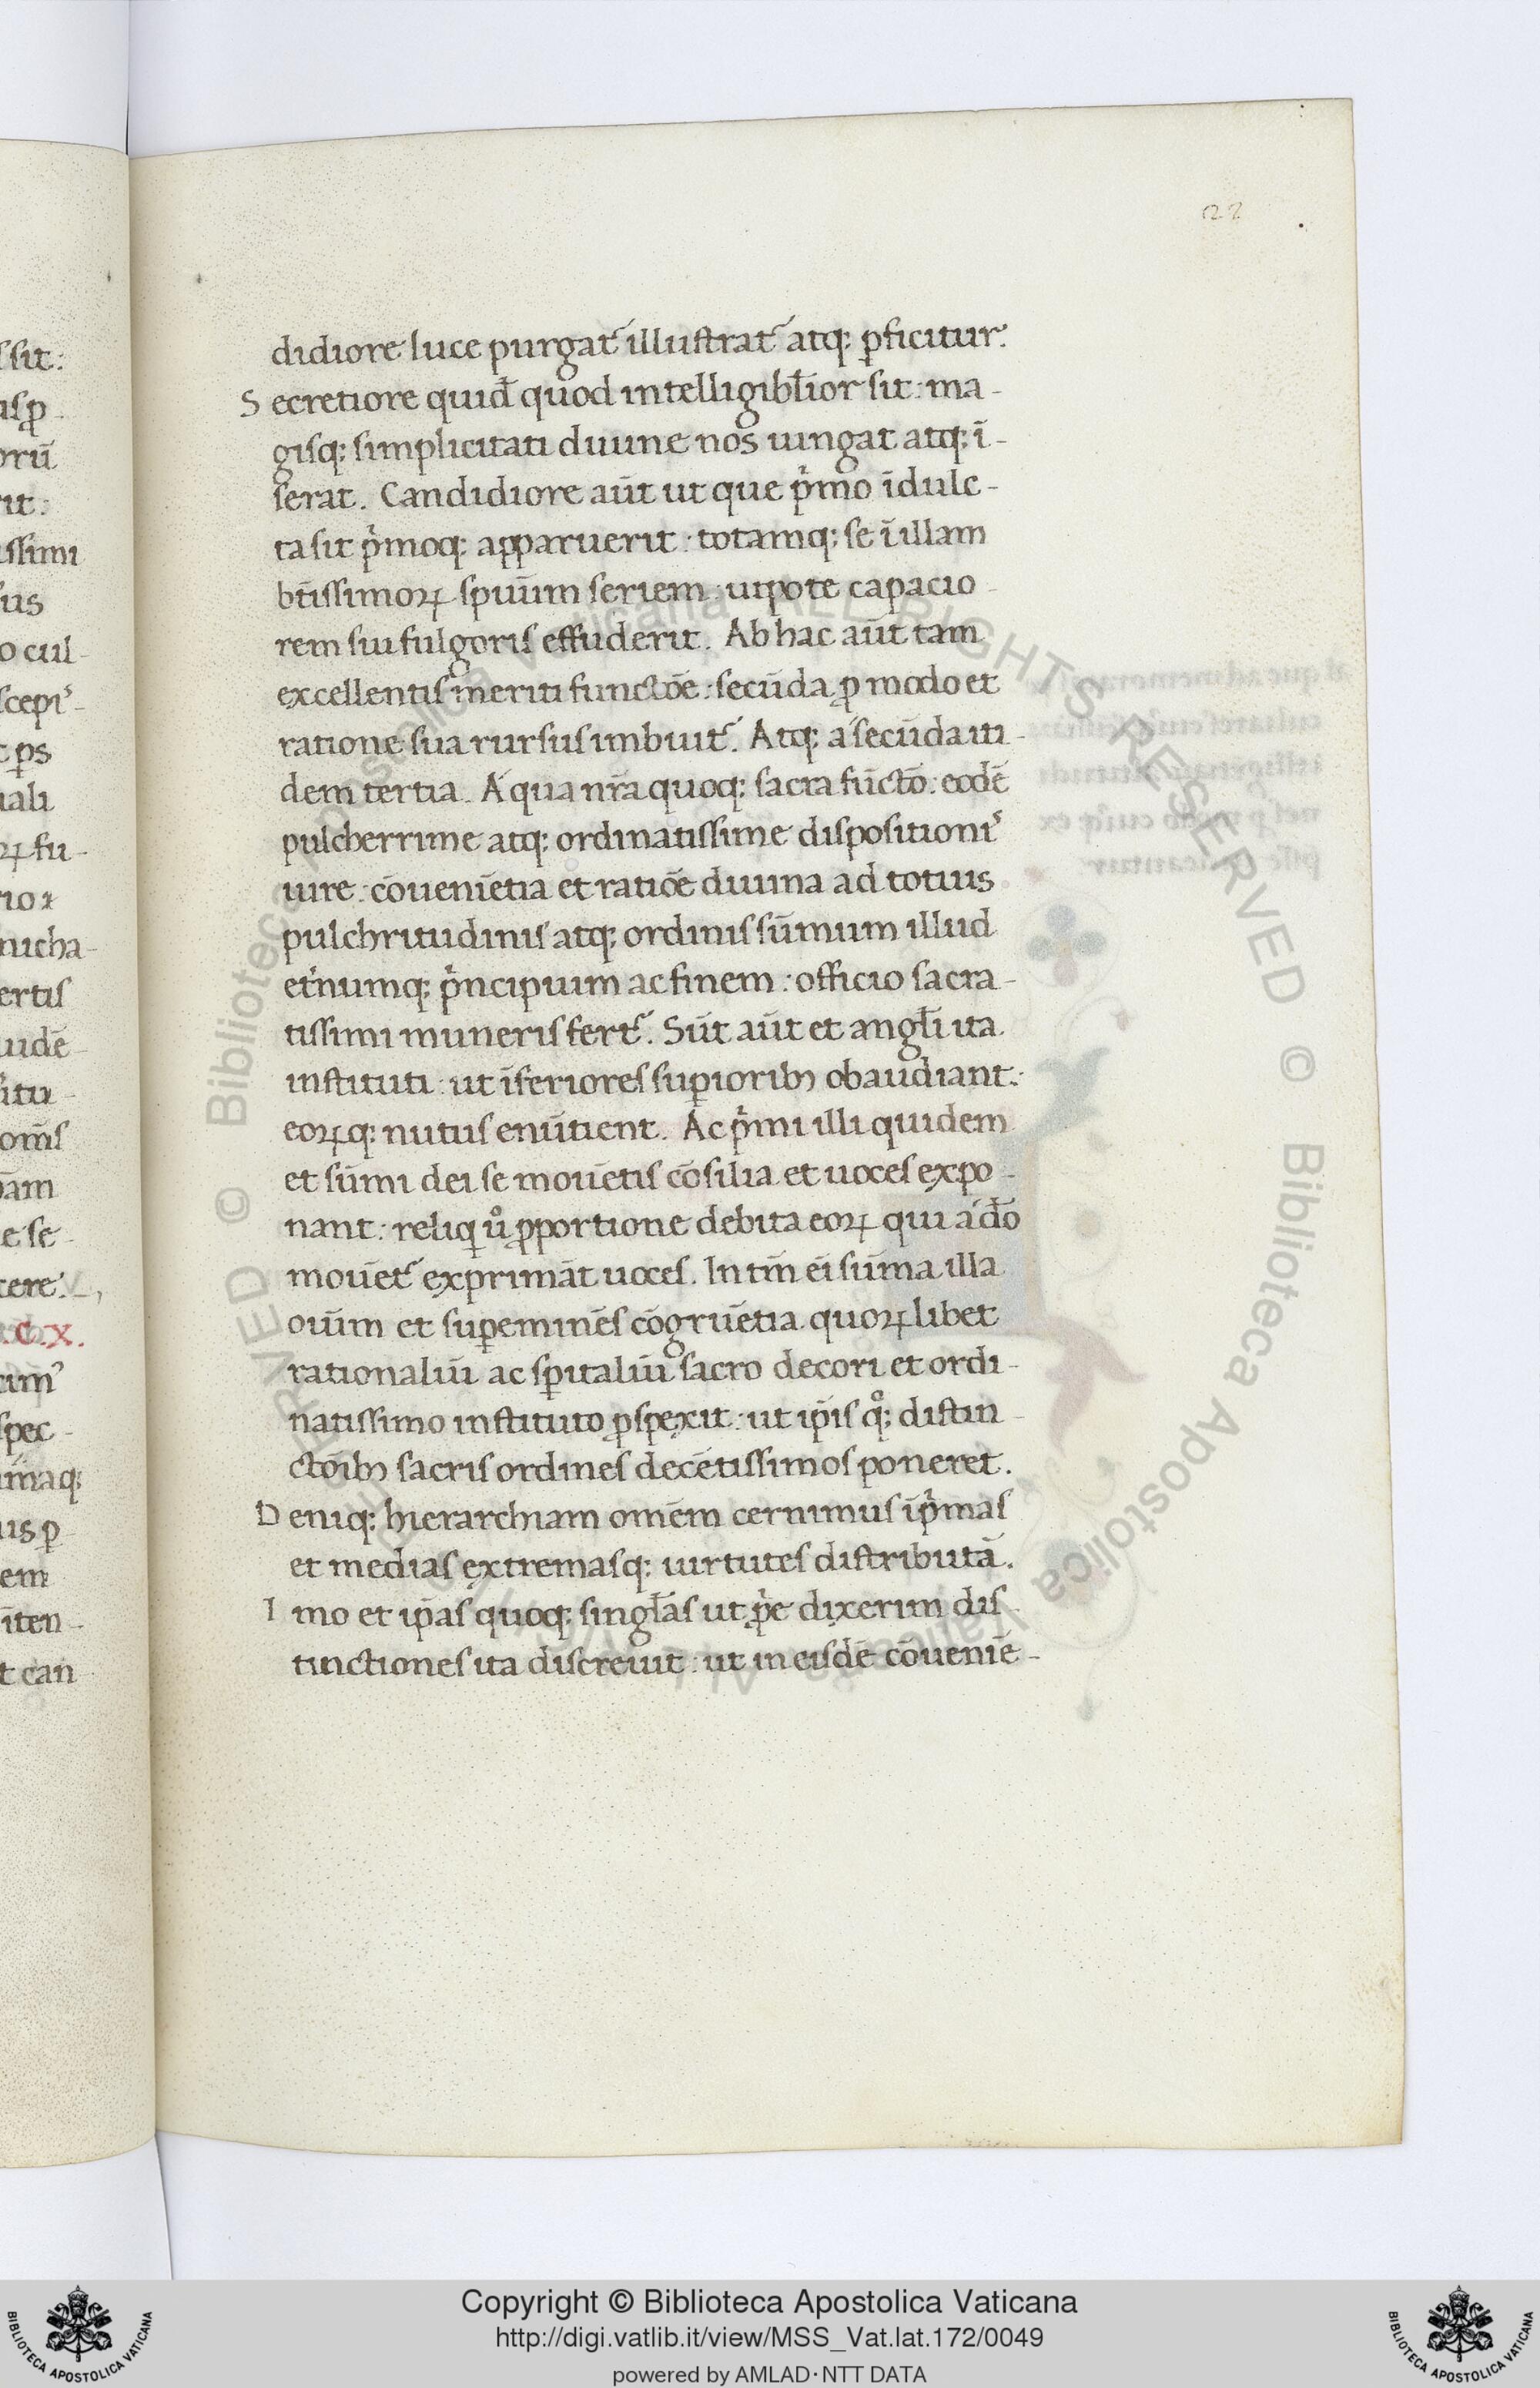 22
didiore luce purgat᷑ illustrat᷑ atq; ꝑficitur.
Secretiore quid̄ quod intelligibl̄ior sit: ma-
gisq; simplicitati diuine nos iungat atq; ī-
serat. Candidiore aūt ut que pⁱmo īdulc-
ta sit pⁱmoq; apparuerit: totamq; se ī illam
bt̄issimoꝝ spuūm seriem: utpote capacio-
rem sui fulgoris effuderit. Ab hac aūt tam
excellentis meriti functōe: secūda ꝓ modo et
ratione sua rursus imbuit᷑. Atq; a secūda iti-
dem tertia. A qua nr̄a quoq; sacra fūctō: eodē
pulcherrime atq; ordinatissime dispositionis
iure: cōueniētia et ratiōe diuina ad totius
pulchritudinis atq; ordinis sūmum illud
et'numq; pⁱncipium ac finem: officio sacra-
tissimi muneris fert᷑. Sūt aūt et angl̄i ita
instituti: ut īferiores suꝑioribꝫ obaudiant:
eoꝝq; nutus enūtient. Ac pⁱmi illi quidem
et sūmi dei se mouētis cōsilia et uoces expo-
nant: reliqi uͦ ꝓportione debita eoꝝ qui a dō
mouēt᷑ exprimāt uoces. In tm̄ ei̅ sūma illa
oiūm et suꝑeminēs cōgruētia quoꝝlibet
rationaliū ac spiritaliū sacro decori et ordi-
natissimo instituto ꝓspexit: ut ip̄is qͦ; distin-
ctōibꝫ sacris ordines decētissimos poneret.
Deniq; hierarchiam omēm cernimus īpⁱmas
et medias extremasq; uirtutes distributā.
Imo et ip̄as quoq; singl̄as ut ꝓpⁱe dixerim dis-
tinctiones ita discreuit: ut in eisdē cōueniē-
Copyright © Biblioteca Apostolica Vaticana
http://digi.vatlib.it/view/MSS_Vat.lat.172/0049
powered by AMLAD·NTT DATA